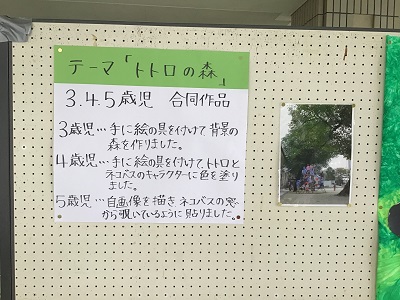 テーマ「トトロの森」
3.4.5歳児 合同作品
3歳児…手に絵の具を付けて背景の
森を作りました。
4歳児…手に絵の具を付けてトトロと
ネコバスのキャラクターに色を塗り
ました。
5歳児…自画像を描きネコバスの窓
から覗いているように貼りました。